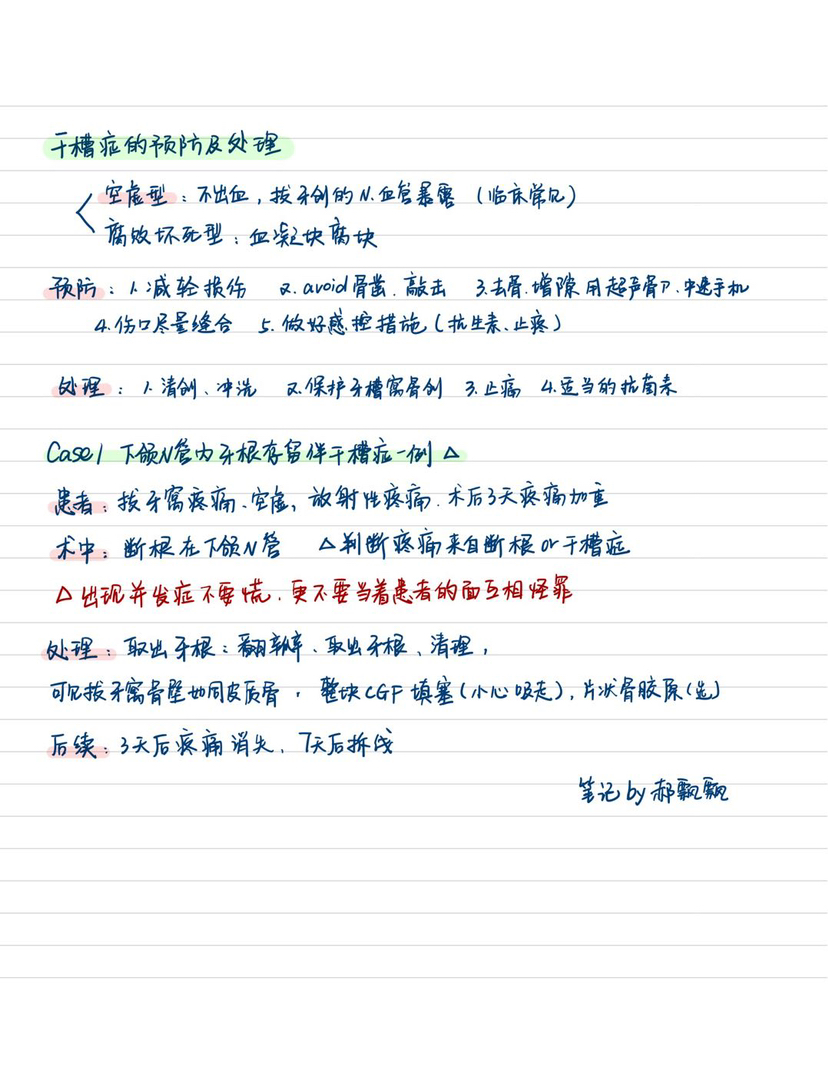 干槽症的预防及处理
空虚型：不出血，拔牙创的N.血管暴露 （临床常见）
腐败坏死型：血凝块腐块
预防：1.减轻损伤 2.avoid骨凿.敲击 3.去骨.增隙用超声骨刀.中速手机
4.伤口尽量缝合 5.做好感控措施（抗生素、止疼）
处理：1.清创、冲洗 2.保护牙槽窝骨创 3.止痛 4.适当的抗菌素
Case1 下颌N管内牙根存留伴干槽症一例△
患者：拔牙窝疼痛、空虚，放射性疼痛.术后3天疼痛加重
术中：断根在下颌N管 △判断疼痛来自断根or干槽症
△出现并发症不要慌.更不要当着患者的面互相怪罪
处理：取出牙根：翻瓣、取出牙根、清理，
可见拔牙窝骨壁如同皮质骨，整块CGF填塞(小心吸走)，片状骨胶原(选)
后续：3天后疼痛消失、7天后拆线
笔记by郝飘飘